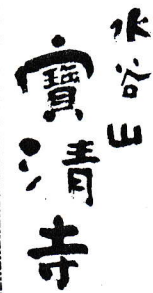 水谷山
寶清寺